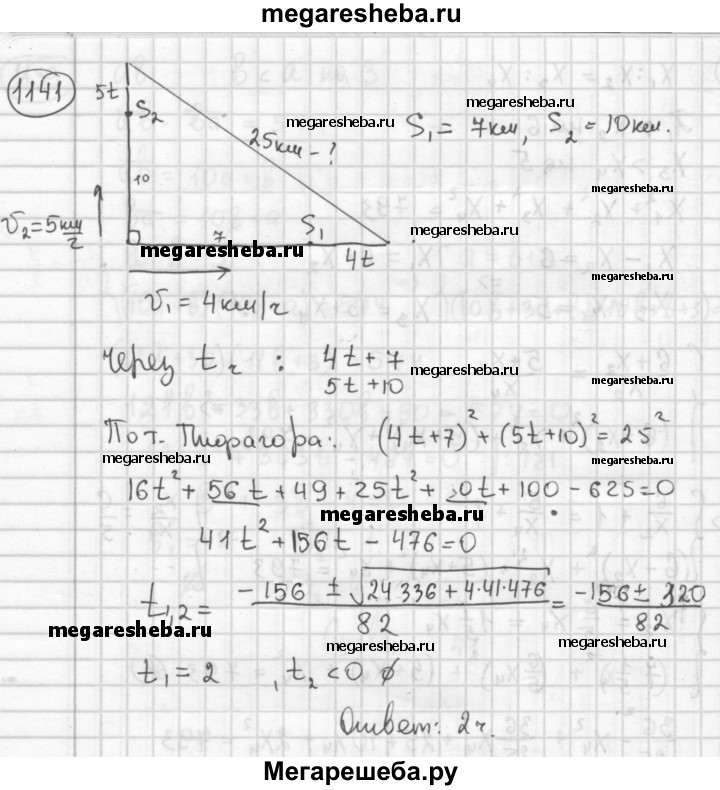 megaresheba.ru
1141
5t
S₂
25км - ?
megaresheba.ru
S₁ = 7км, S₂ = 10км.
megaresheba.ru
megaresheba.ru
10
megaresheba.ru
v₂ = 5 км/ч
7
S₁
megaresheba.ru
megaresheba.ru
4t
megaresheba.ru
v₁ = 4 км/ч
через t ч : 4t + 7
5t + 10
megaresheba.ru
megaresheba.ru
По т. Пифагора: (4t+7)² + (5t+10)² = 25²
megaresheba.ru
megaresheba.ru
16t² + 56t + 49 + 25t² + 0t + 100 - 625 = 0
megaresheba.ru
41t² + 156t - 476 = 0
t₁,₂ = (-156 ± √(24336 + 4·41·476))/82 = (-156 ± 320)/82
megaresheba.ru
megaresheba.ru
megaresheba.ru
t₁ = 2 , t₂ < 0 ∅
megaresheba.ru
Ответ: 2ч.
Мегарешеба.ру